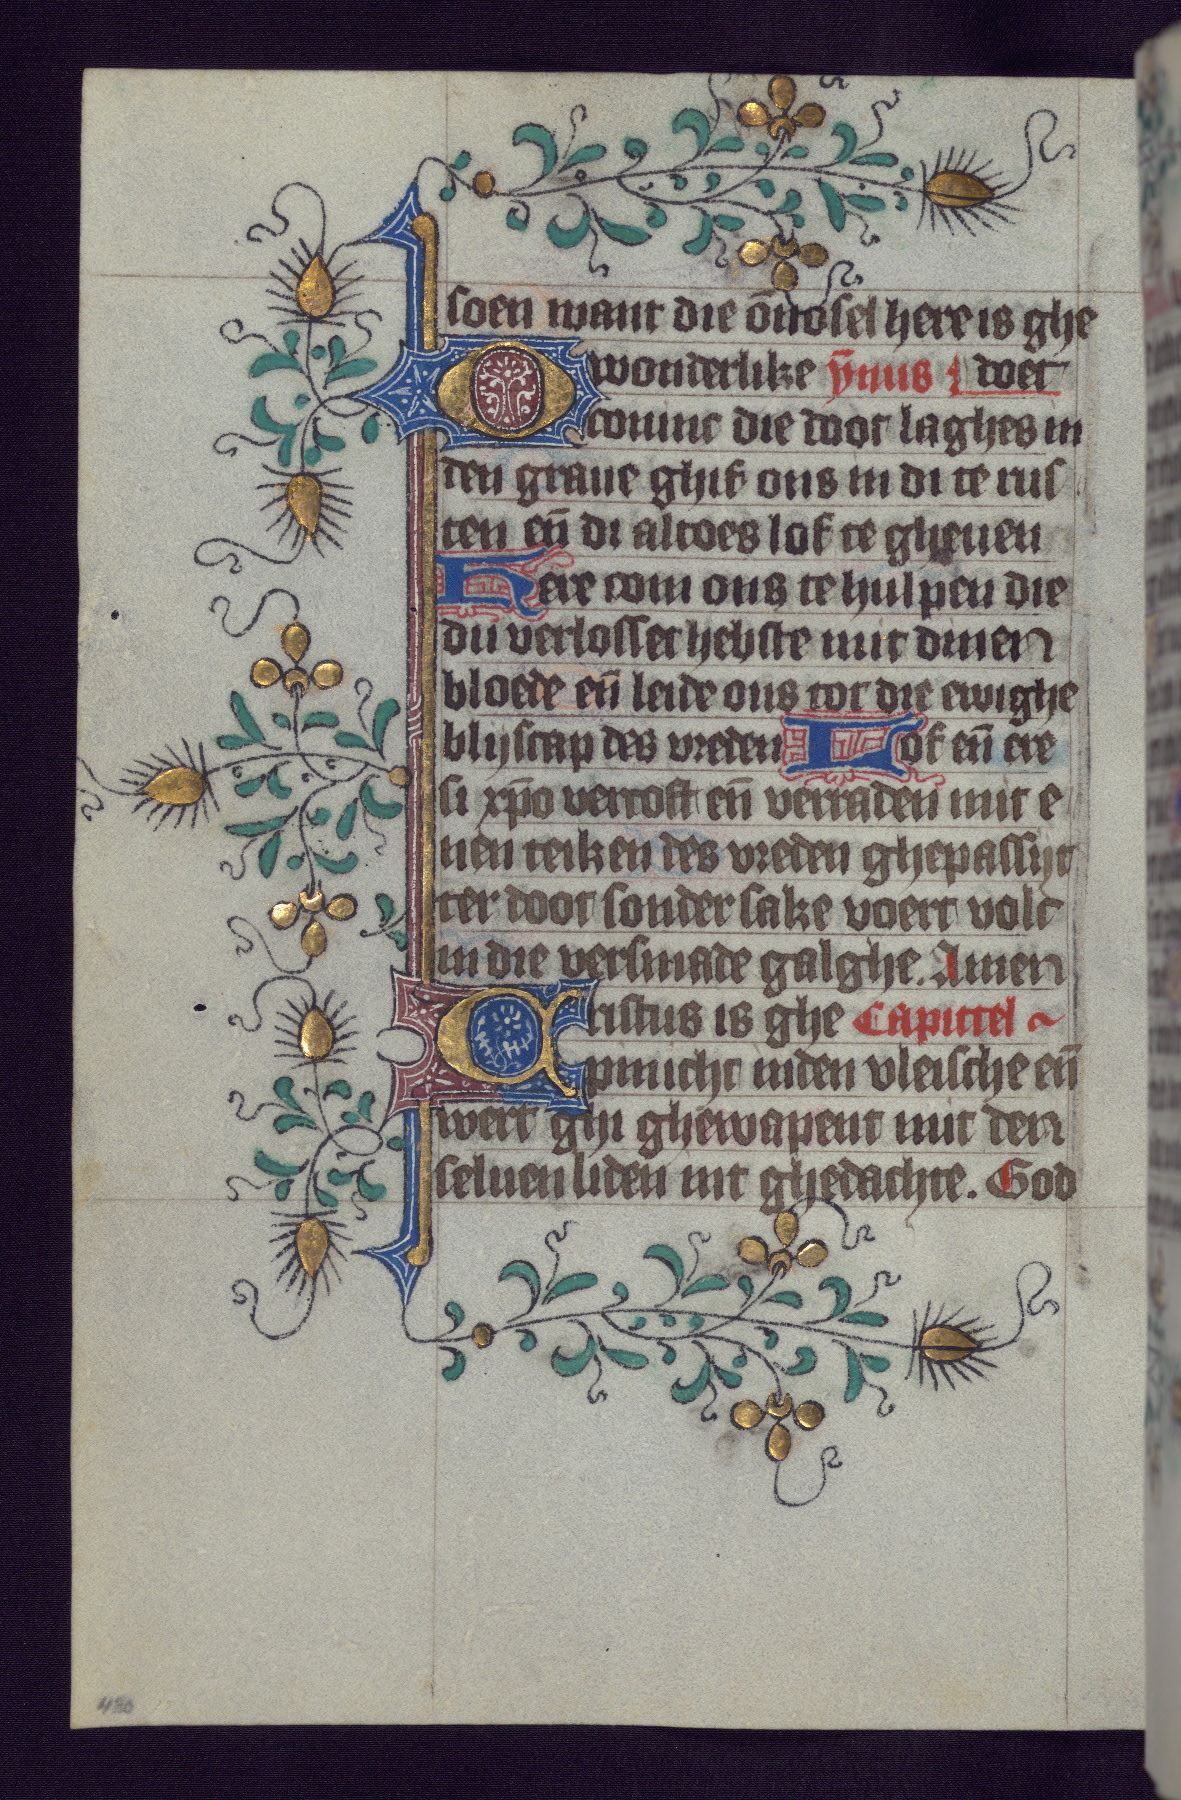 soen want die onnosel here is ghe
O wonderlike ỹnus ¶ doet
coninc die doot laghes in
den graue ghif ons in di te rus
ten eñ di altoes lof te gheuen
Here com ons te hulpen die
du verlosset hebste mit dinen
bloede eñ leide ons tot die ewighe
blijscap des vreden Lof eñ ere
si xp̄o vercoft eñ verraden mit e
nen teiken des vreden ghepassijt
ter doot sonder sake voert volc
in die versmade galghe. Amen
Cristus is ghe Capittel ~
pinicht inden vleische eñ
wert ghi ghewapent mit den
seluen liden int ghedachte. God
480